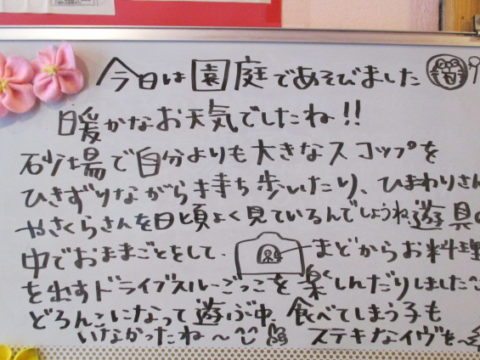 今日は園庭であそびました
暖かなお天気でしたね!!
砂場で自分よりも大きなスコップを
ひきずりながら持ち歩いたり、ひまわりさん
やさくらさんを日頃よく見ているんでしょうね遊具の
中でおままごとをして、まどからお料理
を出すドライブスルーごっこを楽しんだりしました
どろんこになって遊ぶ中、食べてしまう子も
いなかったね〜 ステキなイヴを〜